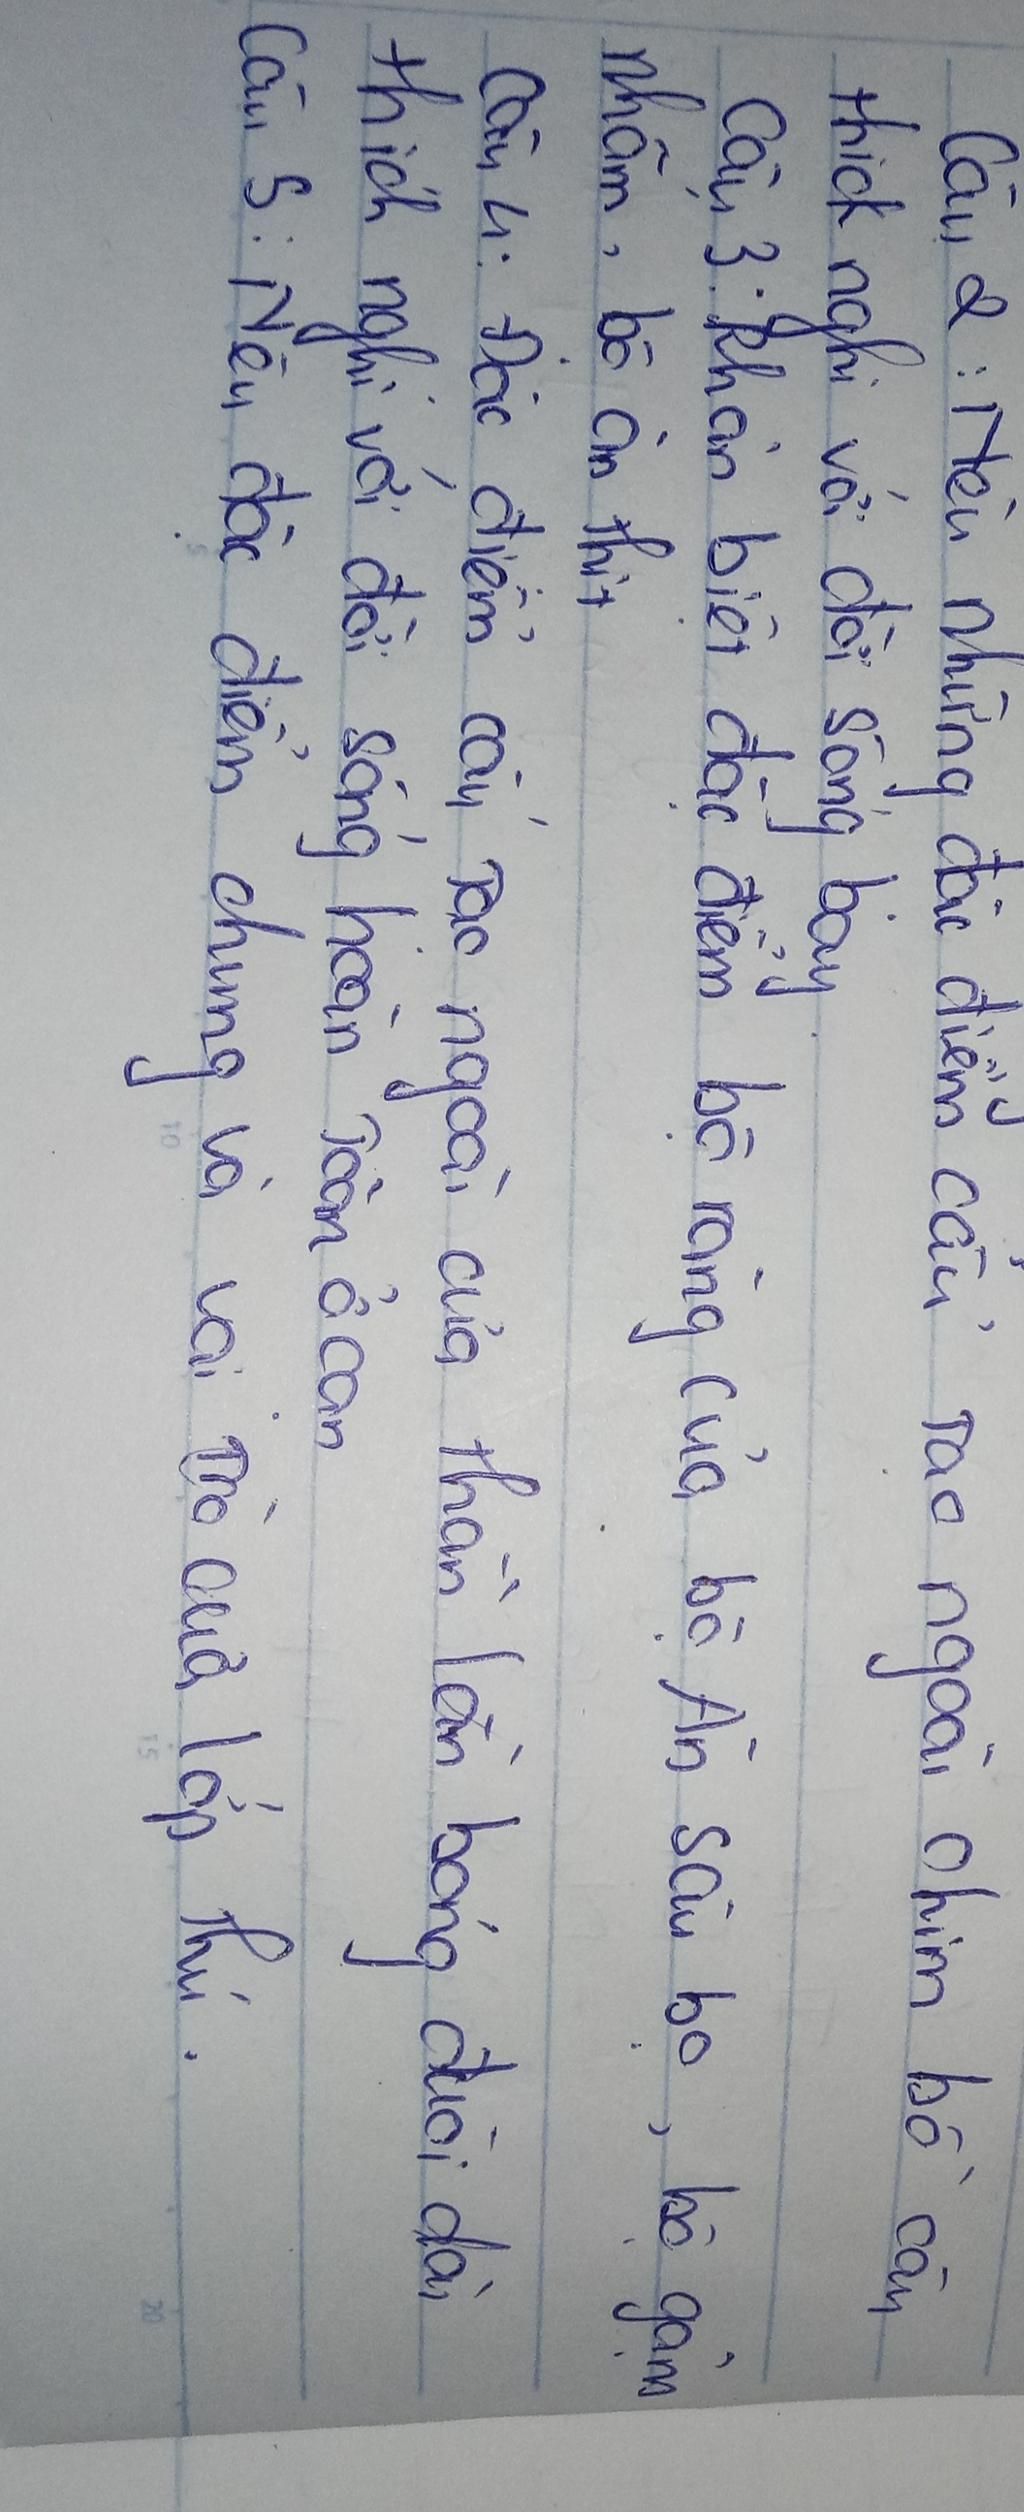 Câu 2: Nêu những đặc điểm cấu tạo ngoài chim bồ câu
thích nghi với đời sống bay
Câu 3: Phân biệt đặc điểm bộ răng của bộ Ăn sâu bọ, bộ gặm
nhấm, bộ ăn thịt
Câu 4: Đặc điểm cấu tạo ngoài của thằn lằn bóng đuôi dài
thích nghi với đời sống hoàn toàn ở cạn
Câu 5: Nêu đặc điểm chung và vai trò của lớp thú.